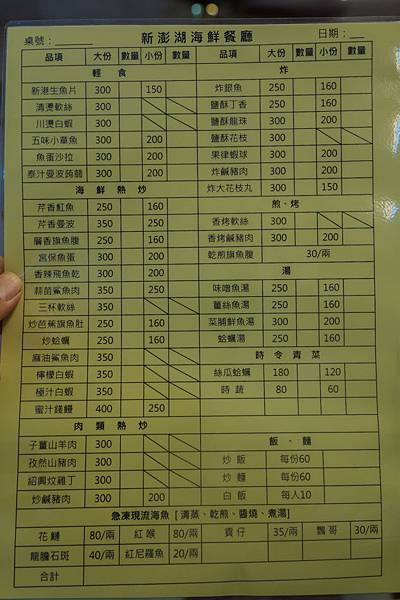 新澎湖海鮮餐廳
桌號： 日期：
品項 大份 數量 小份 數量 品項 大份 數量 小份 數量
輕食
新港生魚片 300 150
清燙軟絲 300
川燙白蝦 300
五味小章魚 300 200
魚蛋沙拉 300 200
泰汁曼波蒟蒻 300 200
海鮮熱炒
芹香魟魚 250 160
芹香曼波 350 250
層香旗魚腹 250 160
宮保魚蛋 300 200
香辣飛魚乾 300 200
蒜苗鯊魚肉 350 250
三杯軟絲 350
炒芭蕉旗魚肚 250 160
炒蛤蠣 250 160
麻油鯊魚肉 350
檸檬白蝦 350
極汁白蝦 350
蜜汁鏠鰻 400 250
肉類熱炒
子薑山羊肉 300
孜然山豬肉 300
紹興炆雞丁 300
炒鹹豬肉 300 200
炸
炸銀魚 250 160
鹽酥丁香 250 160
鹽酥龍珠 300 200
鹽酥花枝 300
果律蝦球 300 200
炸鹹豬肉 300 200
炸大花枝丸 300 150
煎．烤
香烤軟絲 300
香烤鹹豬肉 300 200
乾煎旗魚腹 30/兩
湯
味噌魚湯 250 160
薑絲魚湯 250 160
菜脯鮮魚湯 300 200
蛤蠣湯 250 160
時令青菜
絲瓜蛤蠣 180 120
時蔬 80 60
飯．麵
炒飯 每份60
炒麵 每份60
白飯 每人10
急凍現流海魚 [ 清蒸、乾煎、醬燒、煮湯]
花鰱 80/兩 紅喉 80/兩 貢仔 35/兩 鸚哥 30/兩
龍膽石斑 40/兩 紅尼羅魚 20/兩
合計